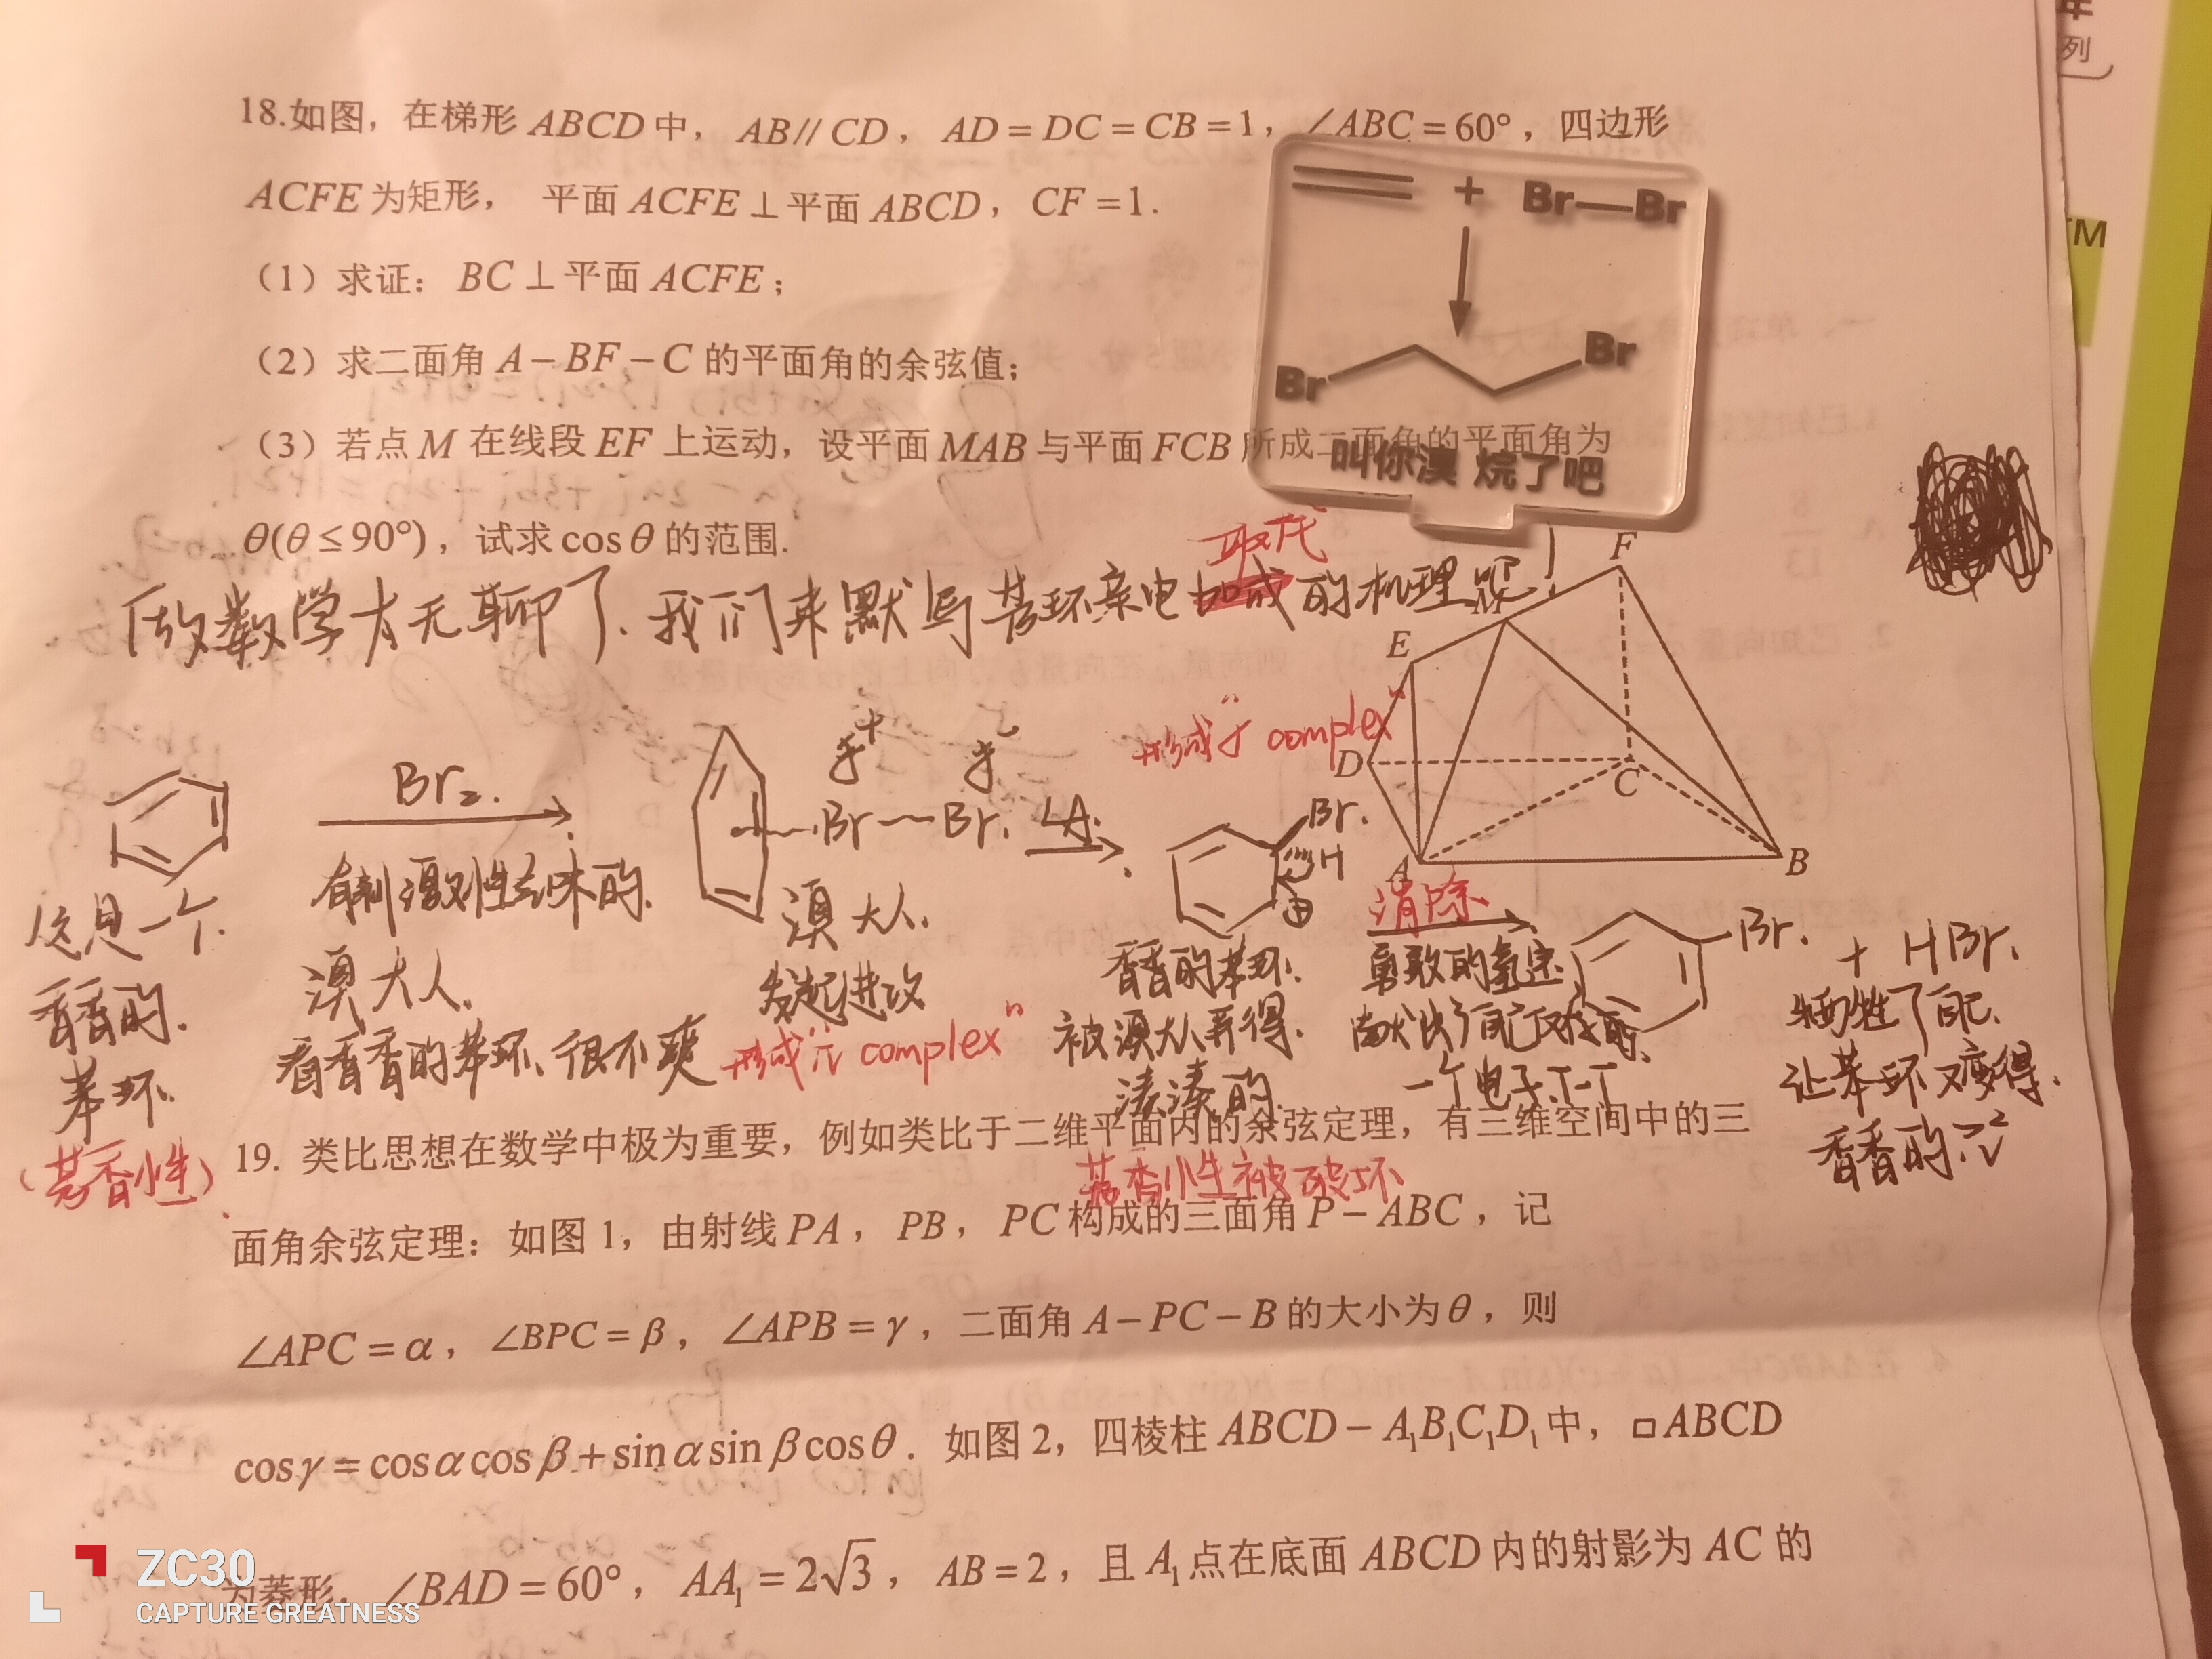 年
列
TM
18.如图，在梯形ABCD中，AB//CD，AD=DC=CB=1，∠ABC=60°，四边形
ACFE为矩形， 平面ACFE⊥平面ABCD，CF=1.
（1）求证：BC⊥平面ACFE；
（2）求二面角A-BF-C的平面角的余弦值；
（3）若点M在线段EF上运动，设平面MAB与平面FCB所成二面角的平面角为
θ(θ≤90°)，试求cosθ的范围.
+ Br—Br
Br Br
叫你溴 烷了吧
取代
做数学太无聊了.我们来默写苯环亲电加成的机理吧!
F
M
E
D
C
A
B
Br₂.
有刺激性气味的
溴大人.
看香香的苯环、很不爽
这是一个
香香的.
苯环
(芳香性)
δ⁺ δ⁻
Br—Br.
溴大人.
发起进攻
形成"π complex"
LA.
形成"σ complex"
Br.
H
⊕
香香的苯环.
被溴大人弄得.
凑凑的.
芳香性被破坏
消除
勇敢的氢宝
献出了自己仅有的
一个电子T-T
Br.
+ HBr.
牺牲了自己.
让苯环又变得.
香香的.
19. 类比思想在数学中极为重要，例如类比于二维平面内的余弦定理，有三维空间中的三
面角余弦定理：如图1，由射线PA，PB，PC构成的三面角P-ABC，记
∠APC=α，∠BPC=β，∠APB=γ，二面角A-PC-B的大小为θ，则
cosγ=cosαcosβ+sinαsinβcosθ．如图2，四棱柱ABCD-A₁B₁C₁D₁中，□ABCD
为菱形，∠BAD=60°，AA₁=2√3，AB=2，且A₁点在底面ABCD内的射影为AC的
ZC30
CAPTURE GREATNESS